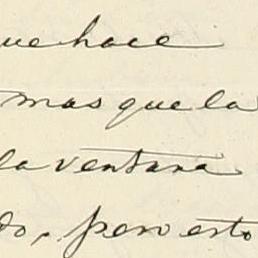 ue hace
mas que la
la ventana
do, pero esto